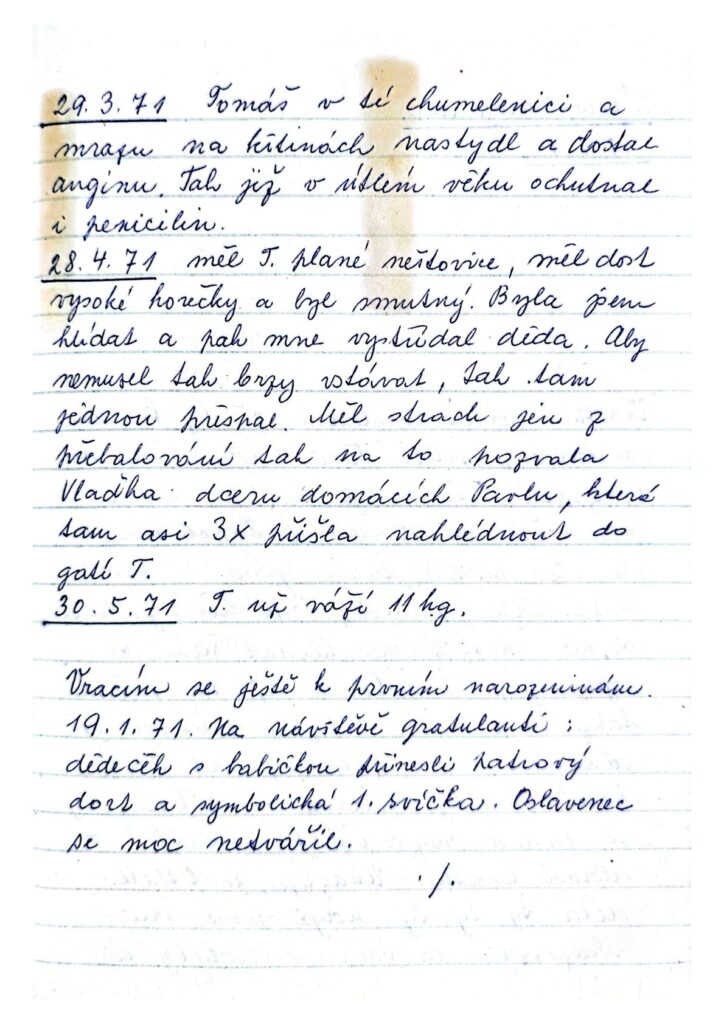 29.3.71 Tomáš v té chumelenici a
mrazu na křtinách nastydl a dostal
angínu. Tak již v útlém věku ochutnal
i penicilin.
28.4.71 měl T. plané neštovice, měl dost
vysoké horečky a byl smutný. Byla jsem
hlídat a pak mne vystřídal děda. Aby
nemusel tak brzy vstávat, tak tam
jednou přespal. Měl strach jen z
přebalování tak na to pozvala
Vlaďka dceru domácích Pavlu, která
tam asi 3x přišla nahlédnout do
gatí T.
30.5.71 T. už váží 11 kg.
Vracím se ještě k prvním narozeninám.
19.1.71. Na návštěvě gratulanti:
dědeček s babičkou přinesli patrový
dort a symbolická 1. svíčka. Oslavenec
se moc netvářil.
./.